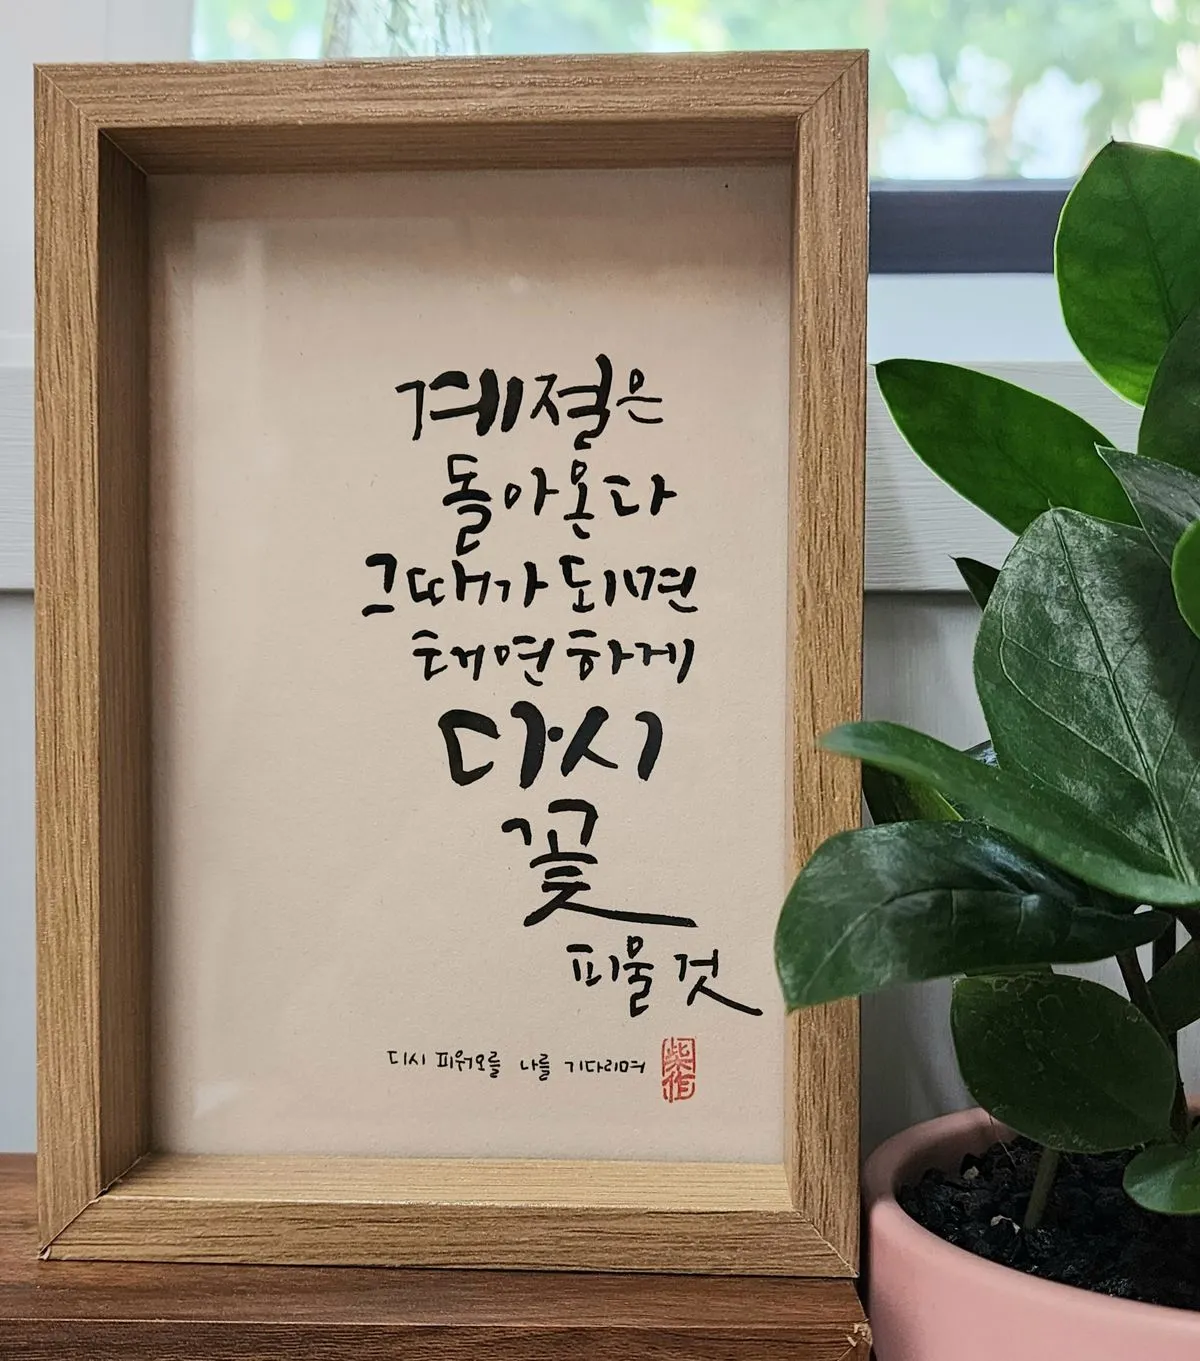 계절은
돌아온다
그때가 되면
태연하게
다시
꽃
피울 것
다시 피워오를 나를 기다리며